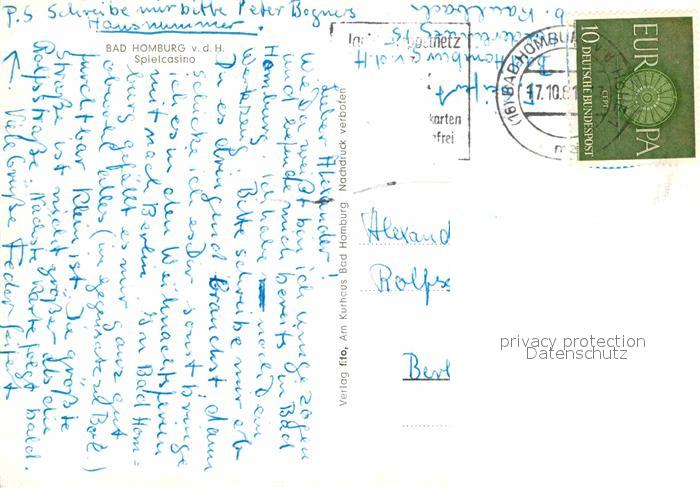 P.S Schreibe mir bitte Peter Bogners
Hausnummer.
BAD HOMBURG v. d. H.
Spielcasino
Lieber Alexander!
Wie Du weißt bin ich umgezogen
und befinde mich bereits in Bad
Homburg. Ich habe noch Dein
Werkzeug. Bitte schreibe mir ob
Du es dringend brauchst dann
schicke ich es Dir sonst bringe
ich es in den Weihnachtsferien
mit nach Berlin. In Bad Hom=
burg gefällt es mir ganz gut
obwohl alles (im gegensatz zu Berl.)
furchtbar klein ist. Die größte
Straße ist nicht größer als die
Rolfsstraße. Nächste Karte folgt bald.
Viele Grüße
Verlag fito, Am Kurhaus Bad Homburg Nachdruck verboten
karten
(16) BAD HOMBURG
17.10.6
EUROPA
CEPT
10 DEUTSCHE BUNDESPOST
Bad Homburg
Alexand
Rolfs
Berl
privacy protection
Datenschutz